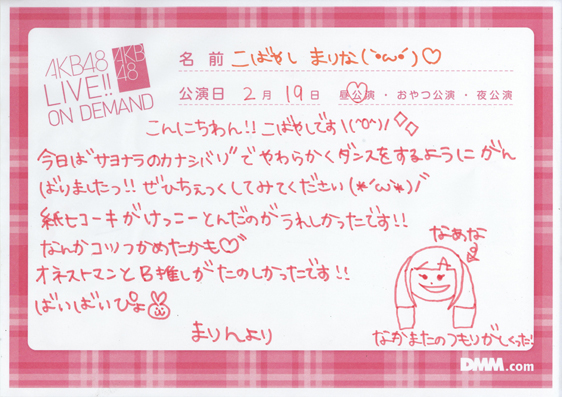 AKB48
LIVE!!
ON DEMAND
AKB
48
名 前 こばやし まりな(`・ω・´)♡
公演日 2月 19日 昼公演・おやつ公演・夜公演
こんにちわん!!こばやしです\(^o^)/◇◇
今日は"サヨナラのカナシバリ"でやわらかくダンスをするようにがん
ばりましたっ!!ぜひちぇっくしてみてください(*´ω`*)/
紙ヒコーキがけっこーとんだのがうれしかったです!!
なんかコツつかめたかも♡
オネストマンとB推しがたのしかったです!!
ばいばいぴょ
まりんより
なあな
なかまたのつもりが
DMM.com